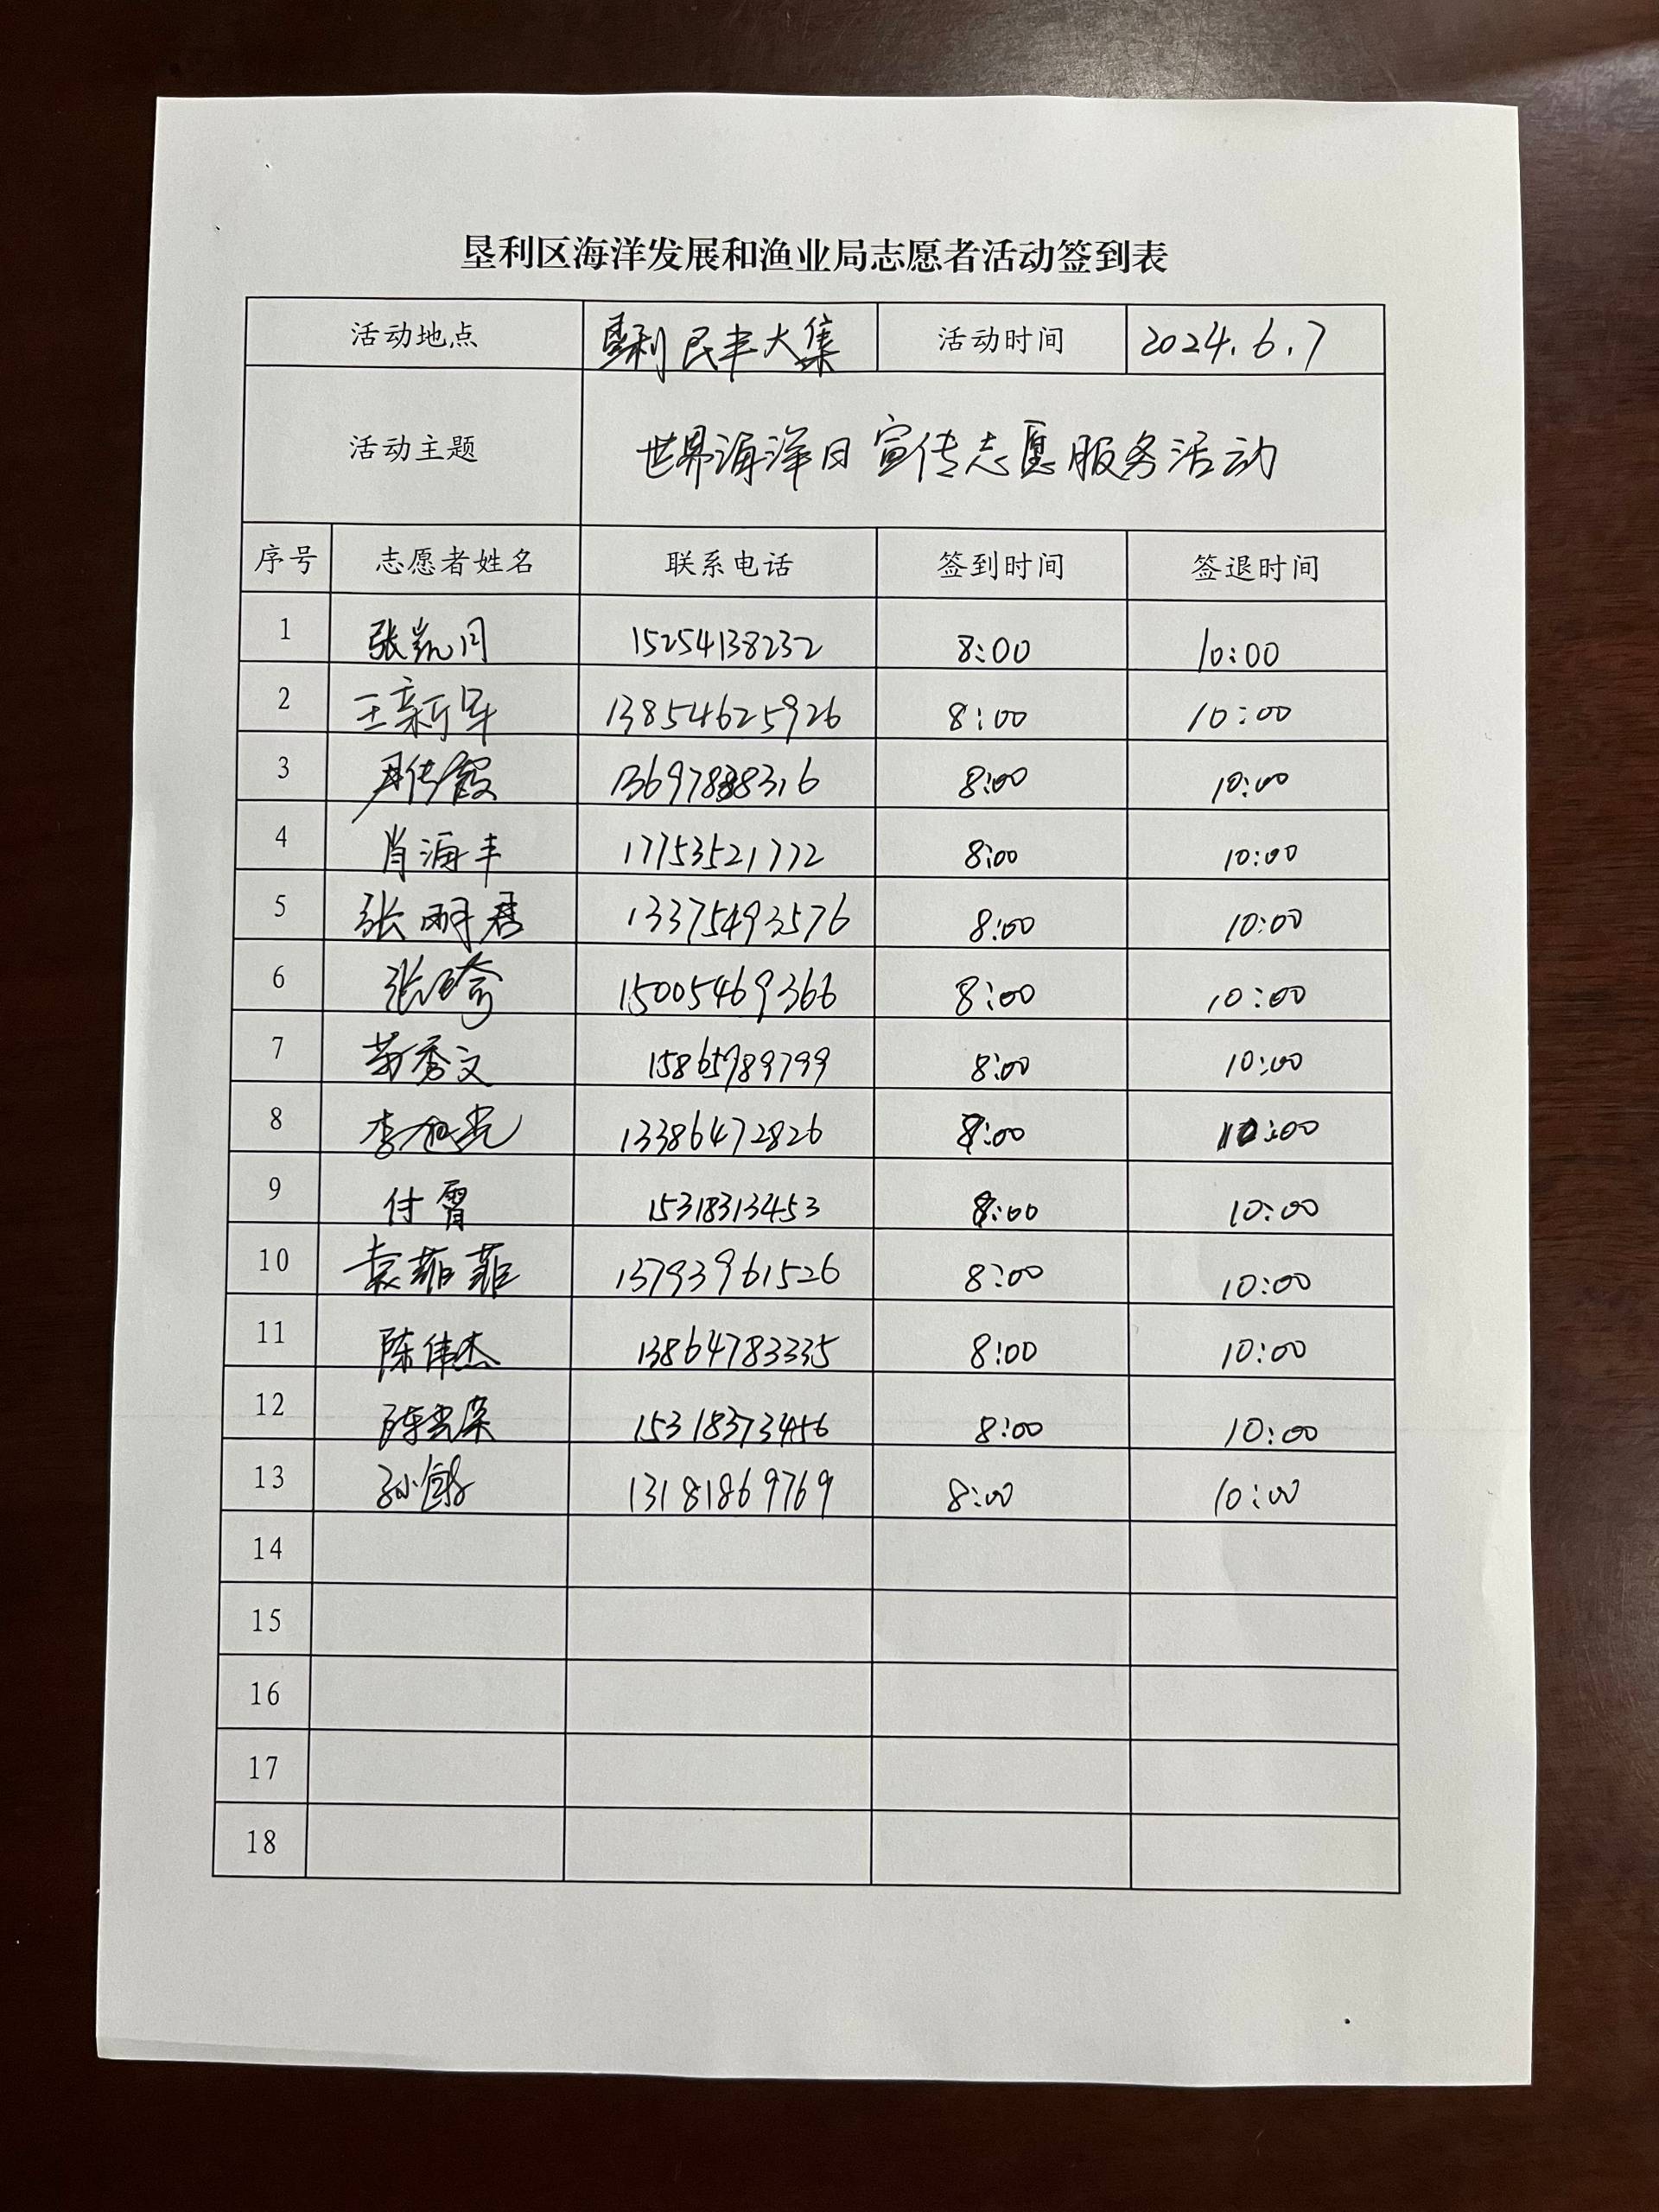 垦利区海洋发展和渔业局志愿者活动签到表
活动地点 垦利民丰大集 活动时间 2024.6.7
活动主题 世界海洋日宣传志愿服务活动
序号 志愿者姓名 联系电话 签到时间 签退时间
1 张凯月 15254138232 8:00 10:00
2 王新军 13854625926 8:00 10:00
3 8:00 10:00
4 肖海丰 17753521772 8:00 10:00
5 张丽君 13375493576 8:00 10:00
6 张琦 15005469366 8:00 10:00
7 苟秀文 15865989799 8:00 10:00
8 李旭光 13386472826 8:00 10:00
9 付霄 15318313453 8:00 10:00
10 袁菲菲 13793961526 8:00 10:00
11 陈伟杰 13864783335 8:00 10:00
12 15318373456 8:00 10:00
13 13181869769 8:00 10:00
14
15
16
17
18